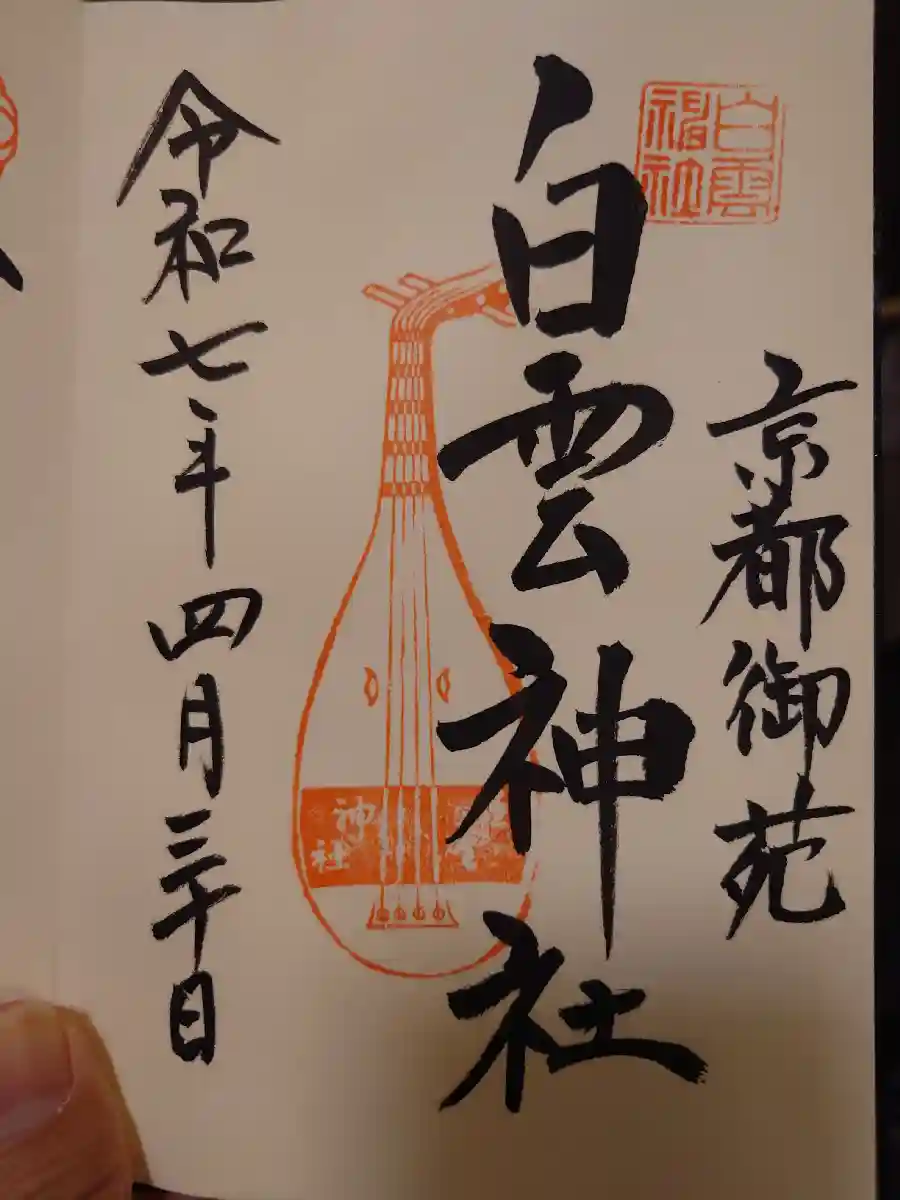 京都御苑
白雲神社
令和七年四月三十日
白雲
神社
神社